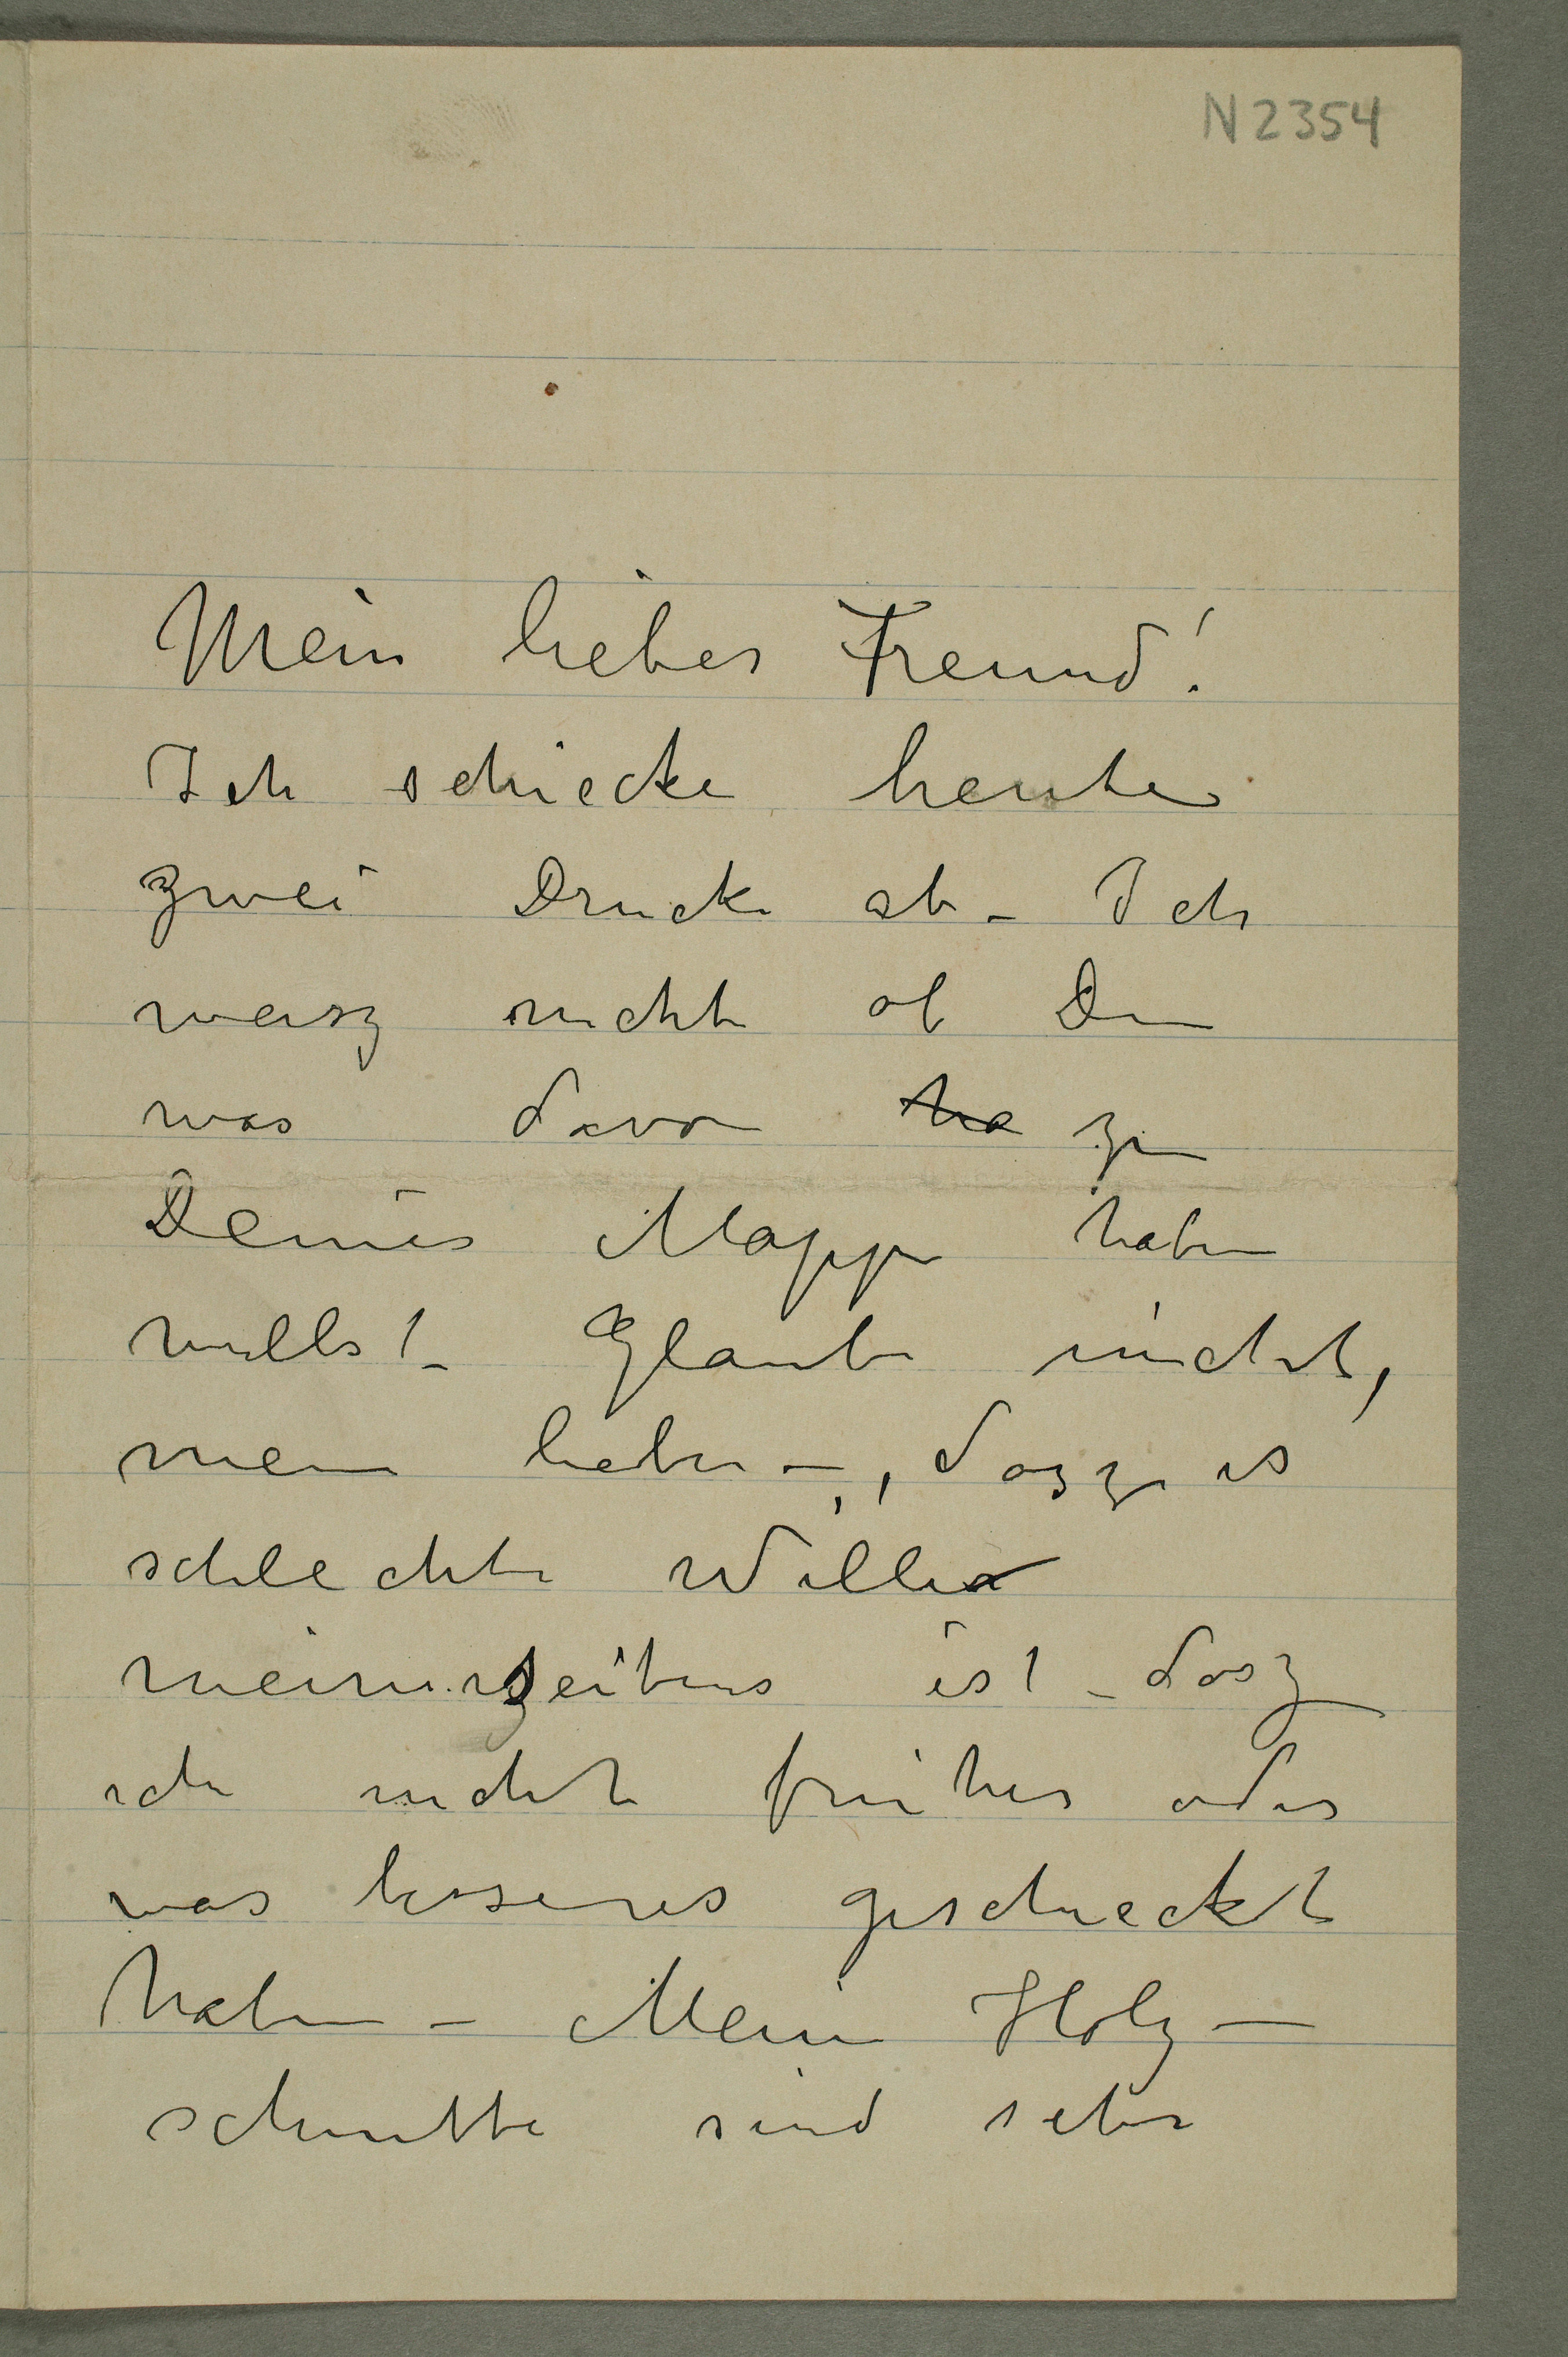 N 2354
Mein lieber Freund!
Ich schiecke heute
zwei Drucke ab – Ich
weisz nicht ob Du
was davon ha zu
Deiner Mappe haben
willst – Glaube nicht,
mein lieber –, dasz es
schlechte Wille
meinerseitens ist – dasz
ich nicht früher oder
was besseres geschieckt
habe – Meine Holz–
schnitte sind sehr